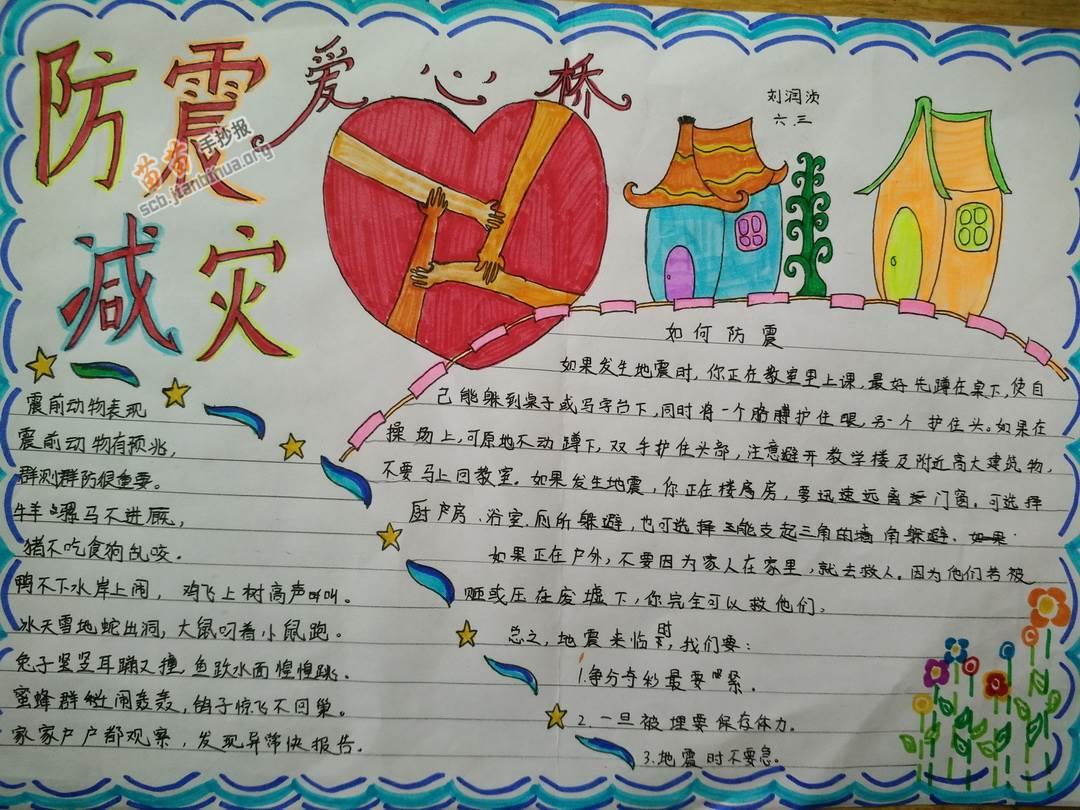 防震
减灾
爱心桥
刘润浈
六.三
苗苗手抄报
scb.jianbihua.org
震前动物表现
震前动物有预兆,
群测群防很重要。
牛羊骡马不进厩,
猪不吃食狗乱咬.
鸭不下水岸上闹, 鸡飞上树高声叫。
冰天雪地蛇出洞,大鼠叼着小鼠跑。
兔子竖竖耳蹦又撞,鱼跃水面惶惶跳.
蜜蜂群闹轰轰,鸽子惊飞不回巢。
家家户户都观察,发现异常快报告.
如何防震
如果发生地震时,你正在教室里上课,最好先蹲在桌下,使自
己能躲到桌子或写字台下,同时将一个胳膊护住眼,另一个护住头。如果在
操场上,可原地不动蹲下,双手护住头部,注意避开教学楼及附近高大建筑物,
不要马上回教室.如果发生地震,你正在楼房,要迅速远离门窗.可选择
厨户房.浴室.厕所躲避,也可选择能支起三角的墙角躲避.如果
如果正在户外,不要因为家人在家里,就去救人。因为他们若被
砸或压在废墟下,你完全可以救他们,
总之,地震来临时,我们要:
1.争分夺秒最要紧.
2.一旦被埋要保存体力.
3.地震时不要急。